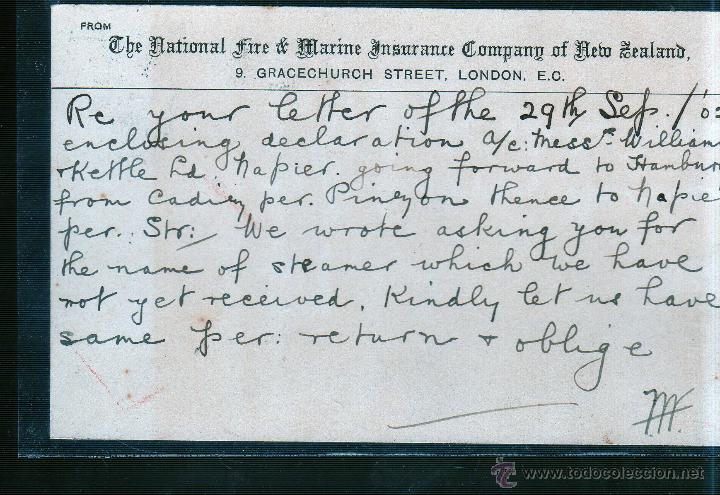 FROM
The National Fire & Marine Insurance Company of New Zealand,
9. GRACECHURCH STREET, LONDON. E.C.
Re your letter of the 29th Sep. /'02
enclosing declaration a/c: Messrs William
& Kettle Ld. Napier. going forward to Hambur
from per. thence to Napie
per. Str: We wrote asking you for
the name of steamer which we have
not yet received. Kindly let us have
same per: return & oblige
www.todocoleccion.net